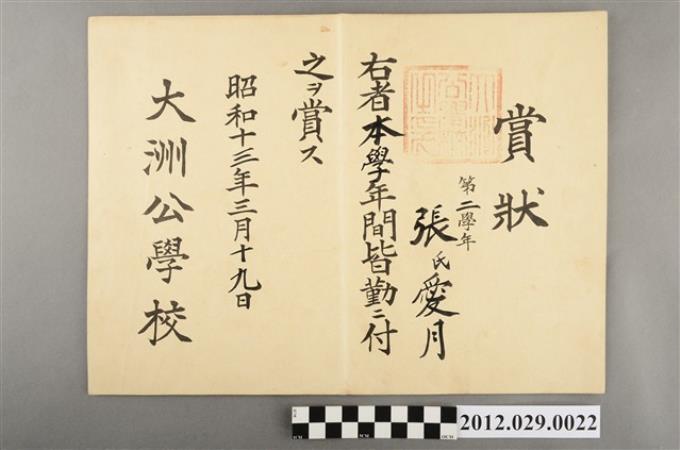 賞狀
第二學年
張氏愛月
右者本學年間皆勤ニ付
之ヲ賞ス
昭和十三年三月十九日
大洲公學校
2012.029.0022